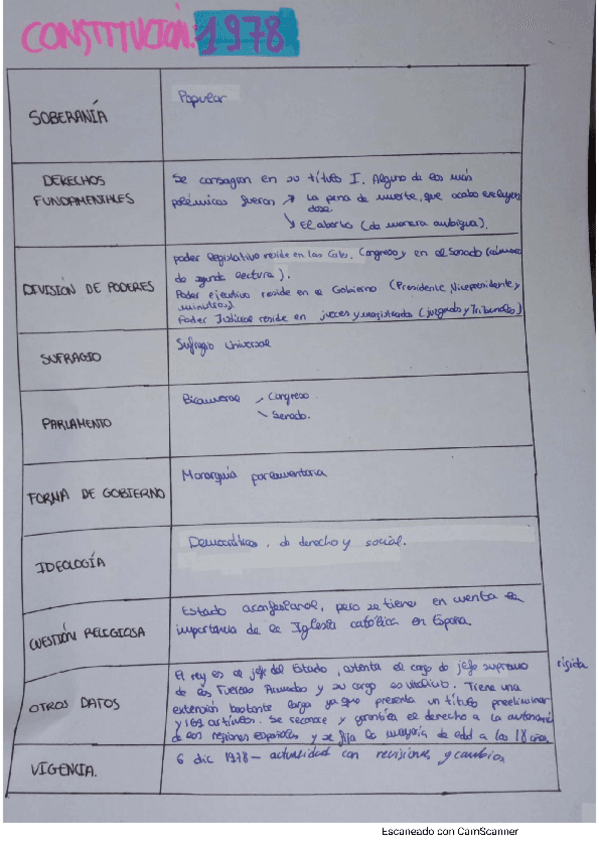 CONSTITUCIÓN. 1978
SOBERANÍA
Popular
DERECHOS
FUNDAMENTALES
Se consagran en su título I. Alguno de los más
polémicos fueron → La pena de muerte, que acabo excluyen
dose.
↘ El aborto (de manera ambigua).
DIVISIÓN DE PODERES
poder legislativo reside en las Cortes. Congreso y en el Senado (cámara
de segunda lectura).
Poder ejecutivo reside en el Gobierno (Presidente, Vicepresidente y
ministros)
Poder Judicial reside en jueces y magistrados (juzgados y Tribunales)
SUFRAGIO
Sufragio Universal
PARLAMENTO
Bicameral
Congreso
Senado.
FORMA DE GOBIERNO
Monarquía parlamentaria
IDEOLOGÍA
Democrático, de derecho y social.
CUESTIÓN RELIGIOSA
Estado aconfesional, pero se tiene en cuenta la
importancia de la Iglesia católica en España.
OTROS DATOS
El rey es el jefe del Estado, ostenta el cargo de jefe supremo
rígida
de las Fuerzas Armadas y su cargo es vitalicio. Tiene una
extensión bastante larga ya que presenta un título preeliminar
y 169 artículos. Se reconoce y garantiza el derecho a la autonomía
de las regiones españolas y se fija la mayoría de edad a los 18 años.
VIGENCIA.
6 dic 1978 – actualidad con revisiones y cambios
Escaneado con CamScanner